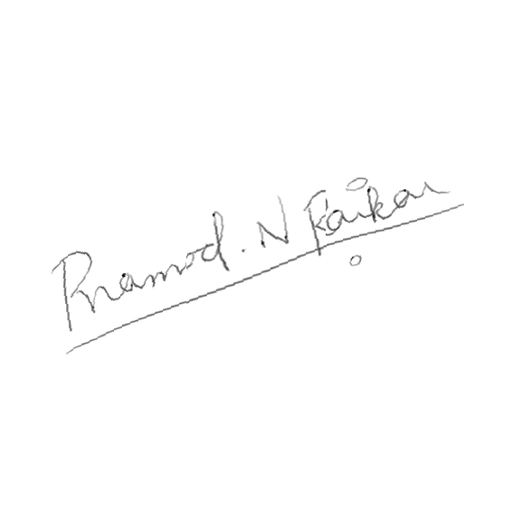 Pramod. N Faikar